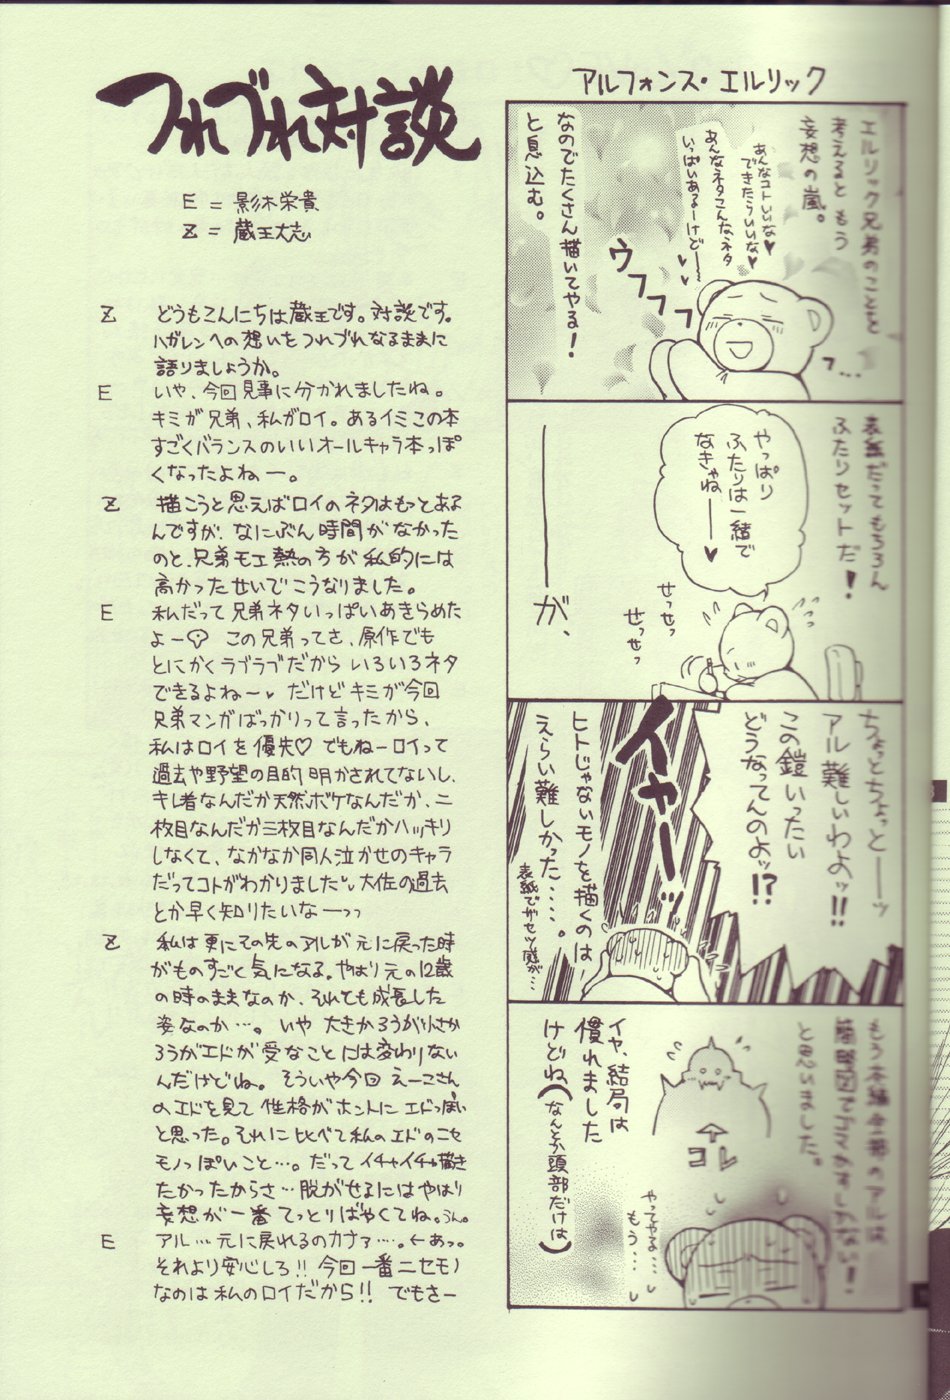 アルフォンス・エルリック
エルリック兄弟のことを
考えると もう
妄想の嵐。
あんなコトいいな♥
できたらいいな♥
あんなネタこんなネタ
いっぱいあるーけどー
ウフフフフ
フ…
なのでたくさん描いてやる!
と息込む。
表紙だってもちろん
ふたりセットだ!
やっぱり
ふたりは一緒で
なきゃねー♥
せっせっ
せっせっ
――が、
ちょっとちょっとーッ
アル難しいわよッ!!
この鎧いったい
どうなってんのよッ!?
イヤーッ
ヒトじゃないモノを描くのは
えらい難しかった‥‥。
もう本編全部のアルは
簡略図でゴマかすしかない!
と思いました。
コレ
イヤ、結局は
慣れました
けどね(なんとか頭部だけは)
やってやる…
もう…
つれづれ対談
E = 影木栄貴
Z = 蔵王大志
Z どうもこんにちは蔵王です。対談です。
ハガレンへの想いをつれづれなるままに
語りましょうか。
E いや、今回見事に分かれましたね。
キミが兄弟、私がロイ。あるイミこの本
すごくバランスのいいオールキャラ本っぽ
くなったよねー。
Z 描こうと思えばロイのネタはもっとあるん
んですが、なにぶん時間がなかった
のと、兄弟モエ熱の方が私的には
高かったせいでこうなりました。
E 私だって兄弟ネタいっぱいあきらめた
よー この兄弟ってさ、原作でも
とにかくラブラブだから いろいろネタ
できるよねー♥ だけどキミが今回
兄弟マンガばっかりって言ったから、
私はロイを優先♡ でもねーロイって
過去や野望の目的 明かされてないし、
キレ者なんだか天然ボケなんだか、二
枚目なんだか三枚目なんだかハッキリ
しなくて、なかなか同人泣かせのキャラ
だってコトがわかりました。大佐の過去
とか早く知りたいなーっっ
Z 私は更にその先のアルが元に戻った時
がものすごく気になる。やはり元の12歳
の時のままなのか、それとも成長した
姿なのか…。いや 大きかろうが小さか
ろうがエドが受なことには変わりない
んだけどね。そういや今回 えーこさん
のエドを見て 性格がホントに エドっぽい
と思った。それに比べて私のエドのニセ
モノっぽいこと…。だって イチャイチャ描き
たかったからさ…脱がせるにはやはり
妄想が一番 てっとりばやくてね。うん。
E アル…元に戻れるのカナァ…。←あっ。
それより安心しろ!! 今回一番ニセモノ
なのは私のロイだから!! でもさー